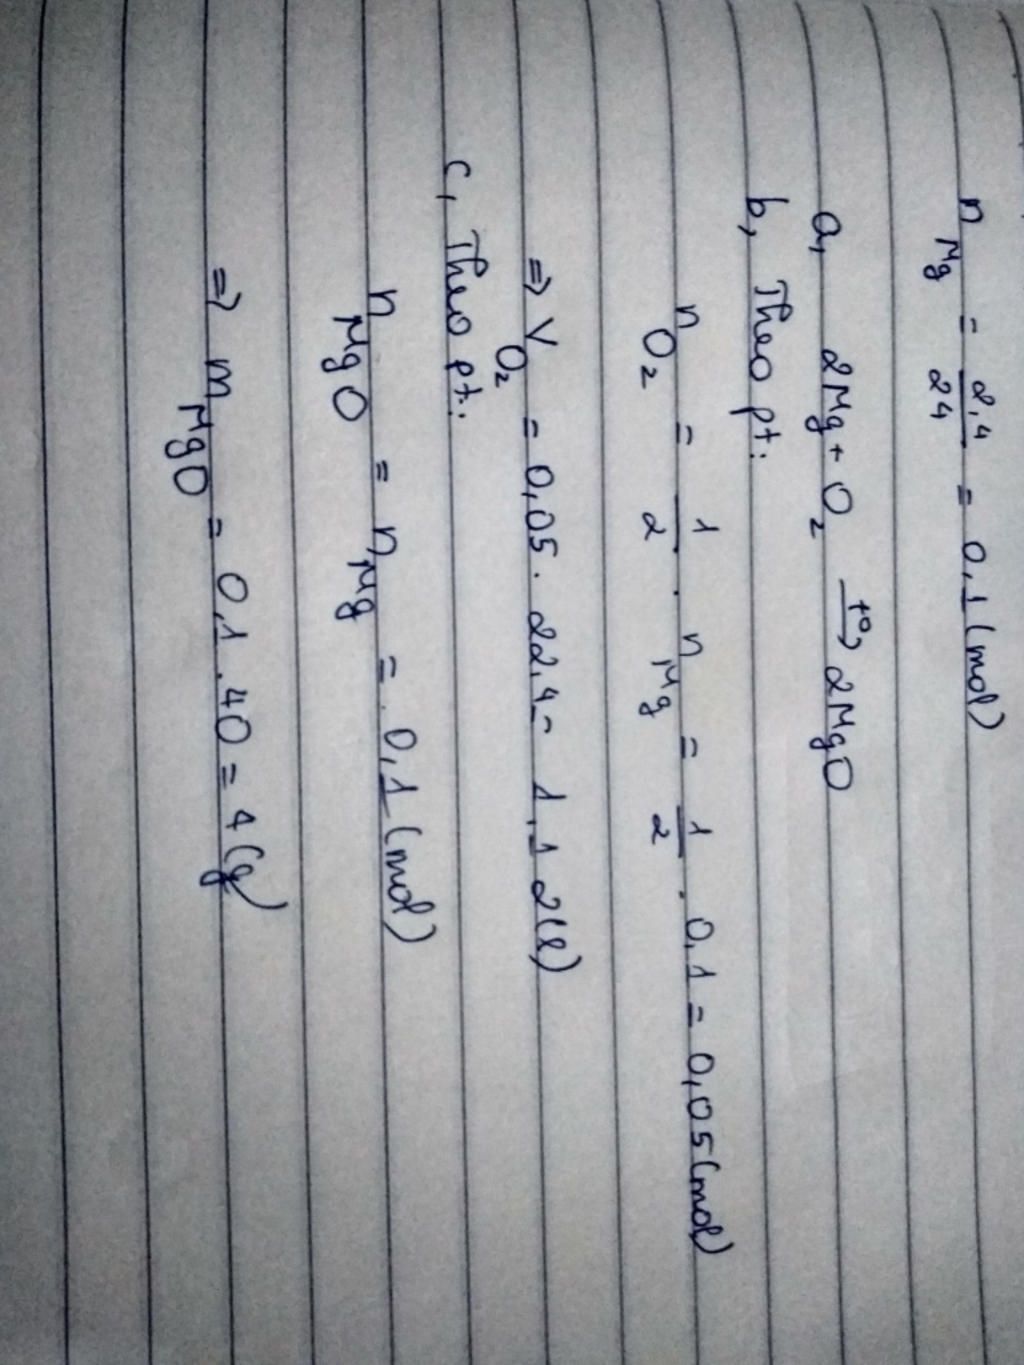 n_Mg = 2,4/24 = 0,1 (mol)
a, 2Mg + O₂ —t°→ 2MgO
b, Theo pt:
n_O₂ = 1/2 . n_Mg = 1/2 . 0,1 = 0,05 (mol)
⇒ V_O₂ = 0,05 . 22,4 = 1,12 (l)
c, Theo pt:
n_MgO = n_Mg = 0,1 (mol)
⇒ m_MgO = 0,1 . 40 = 4 (g)